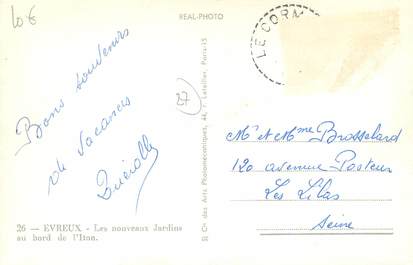 10 €
REAL-PHOTO
LE CORM
Bons souvenirs
de vacances
27
Mr et Mme Brosselard
120 avenue Pasteur
Les Lilas
Seine
26 — EVREUX - Les nouveaux Jardins
au bord de l'Iton.
St Ch des Arts Photomécaniques, 44, r. Letellier, Paris-15